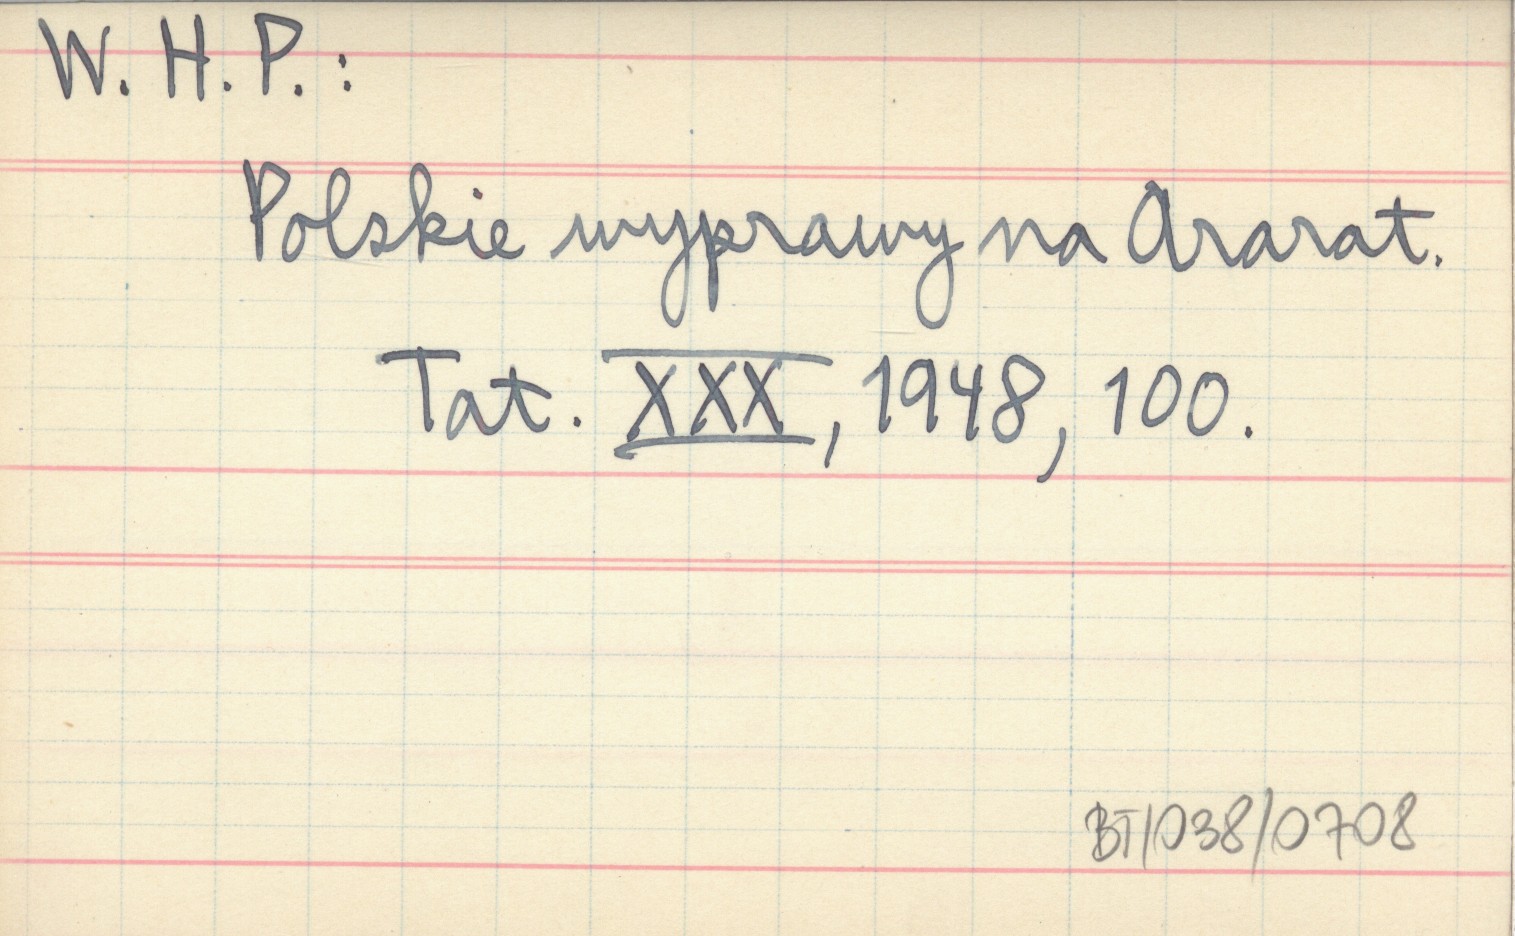 W. H. P.:
Polskie wyprawy na Ararat.
Tat. XXX, 1948, 100.
BT/038/0708